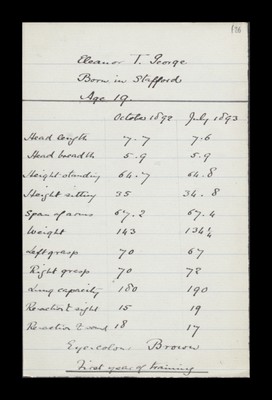 126
Eleanor T. George
Born in Stafford
Age 19.
October 1892 July 1893
Head length 7.7 7.6
Head breadth 5.9 5.9
Height standing 64.7 64.8
Height sitting 35 34.8
Span of arms 67.2 67.4
Weight 143 134¼
Left grasp 70 67
Right grasp 70 72
Lung capacity 180 190
Reaction t. sight 15 19
Reaction t. sound 18 17
Eye colour Brown
First year of training